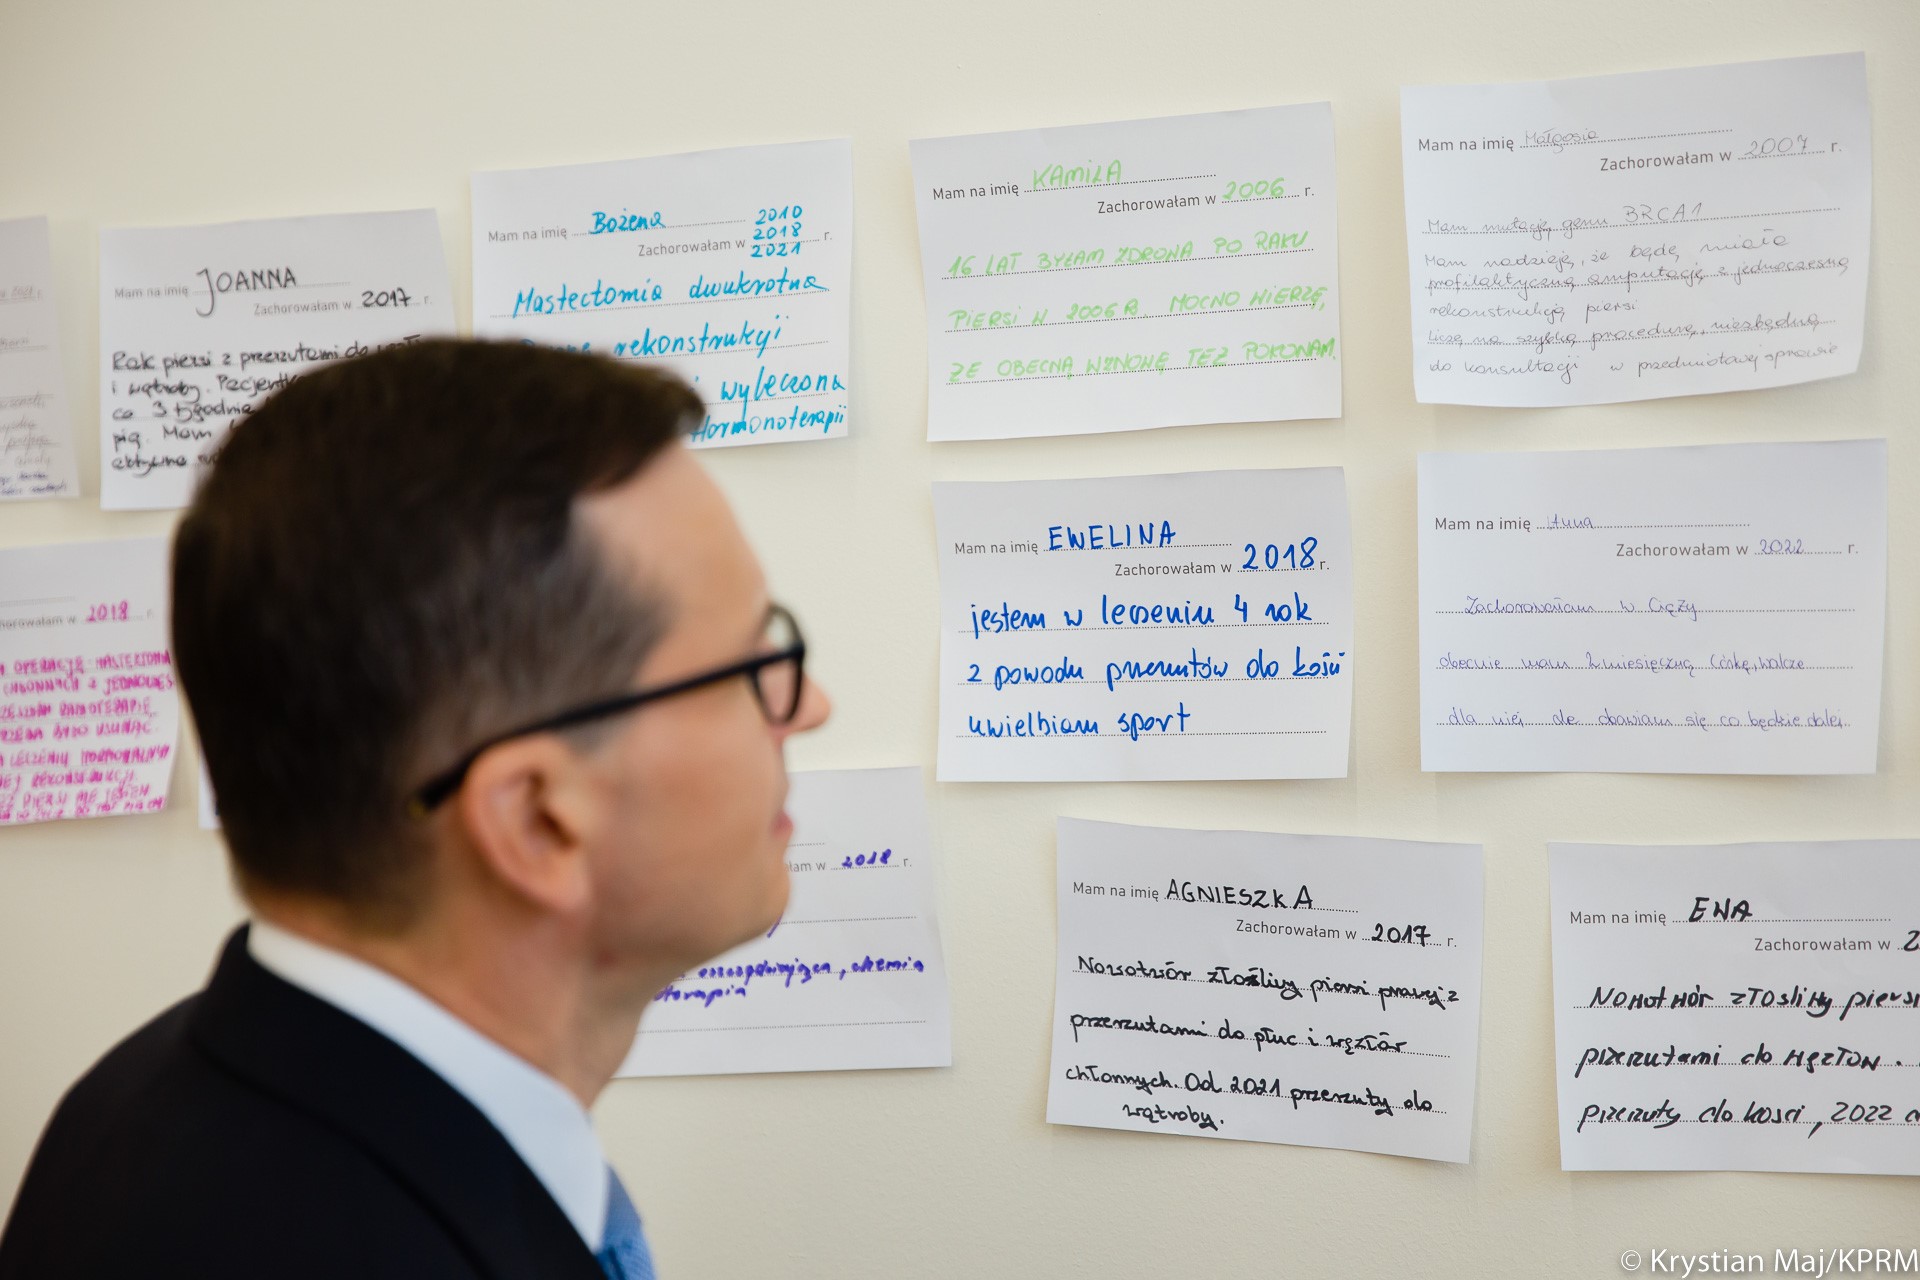 Mam na imię JOANNA
Zachorowałam w 2017 r.
Rak piersi z przerzutami do
i wątroby.
co 3 tygodnie
pią. Mam
aktywne
Mam na imię Bożena
2010
2018
Zachorowałam w 2021 r.
Mastectomia dwukrotna
rekonstrukcji
wyleczona
Hormonoterapii
Mam na imię KAMILA
Zachorowałam w 2006 r.
16 LAT BYŁAM ZDROWA PO RAKU
PIERSI W 2006 R. MOCNO WIERZĘ,
ŻE OBECNĄ WZNOWĘ TEŻ POKONAM.
Mam na imię Małgosia
Zachorowałam w 2007 r.
Mam mutację genu BRCA1
Mam nadzieję, że będę miała
profilaktyczną amputację z jednoczesną
rekonstrukcją piersi
Liczę na szybką procedurę, niezbędną
do konsultacji w przedmiotowej sprawie
2018 r.
OPERACJĘ MASTEKTOMIA
CHŁONNYCH Z
LECZENIU HORMONALNYM
REKONSTRUKCJI
Mam na imię EWELINA
Zachorowałam w 2018 r.
jestem w leczeniu 4 rok
z powodu przerzutów do kości
uwielbiam sport
Mam na imię Anna
Zachorowałam w 2022 r.
Zachorowałam w Ciąży
obecnie mam 2 miesięczną Córkę, walczę
dla niej ale obawiam się co będzie dalej
łam w 2018 r.
oszczędzająca, chemia
terapia
Mam na imię AGNIESZKA
Zachorowałam w 2017 r.
Nowotwór złośliwy piersi prawej z
przerzutami do płuc i węzłów
chłonnych. Od 2021 przerzuty do
wątroby.
Mam na imię EWA
Zachorowałam w 2
Nowotwór złośliwy piersi
przerzutami do węzłów.
przerzuty do kości, 2022
© Krystian Maj/KPRM